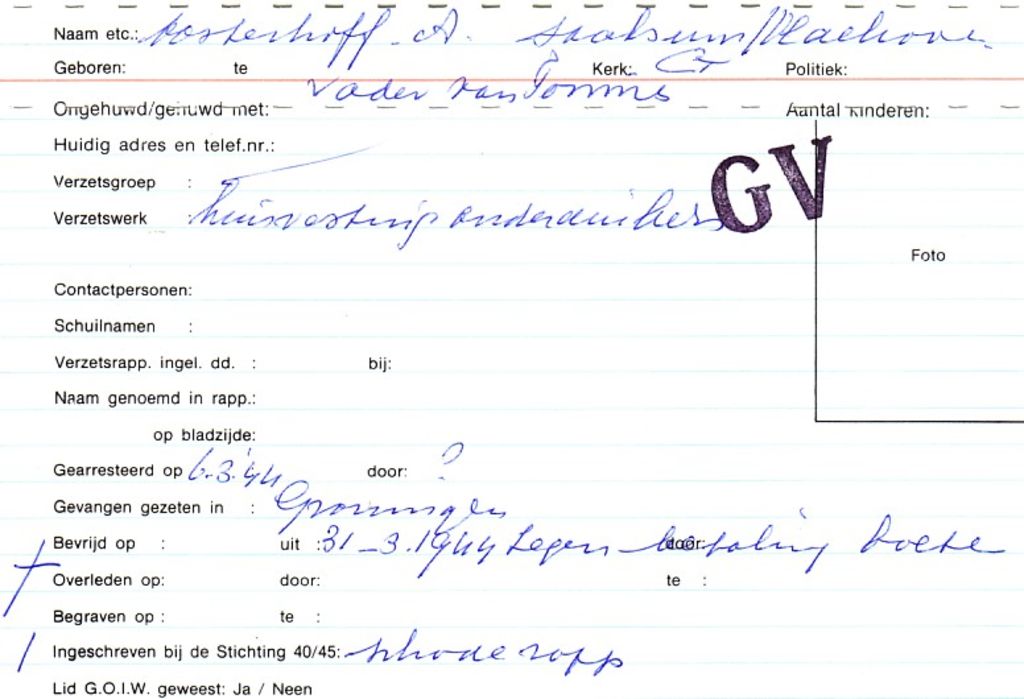 Naam etc.: Kosterhoff A.
Geboren: te Kerk: Politiek:
Vader van Tomme
Ongehuwd/gehuwd met: Aantal kinderen:
Huidig adres en telef.nr.:
GV
Verzetsgroep :
Verzetswerk huisvesting onderduikers
Foto
Contactpersonen:
Schuilnamen :
Verzetsrapp. ingel. dd. : bij:
Naam genoemd in rapp.:
op bladzijde:
Gearresteerd op 6.3.'44 door: ?
Gevangen gezeten in : Groningen
Bevrijd op : uit : 31-3.1944 tegen betaling boete door:
Overleden op: door: te :
Begraven op : te :
Ingeschreven bij de Stichting 40/45: schade rapp
Lid G.O.I.W. geweest: Ja / Neen